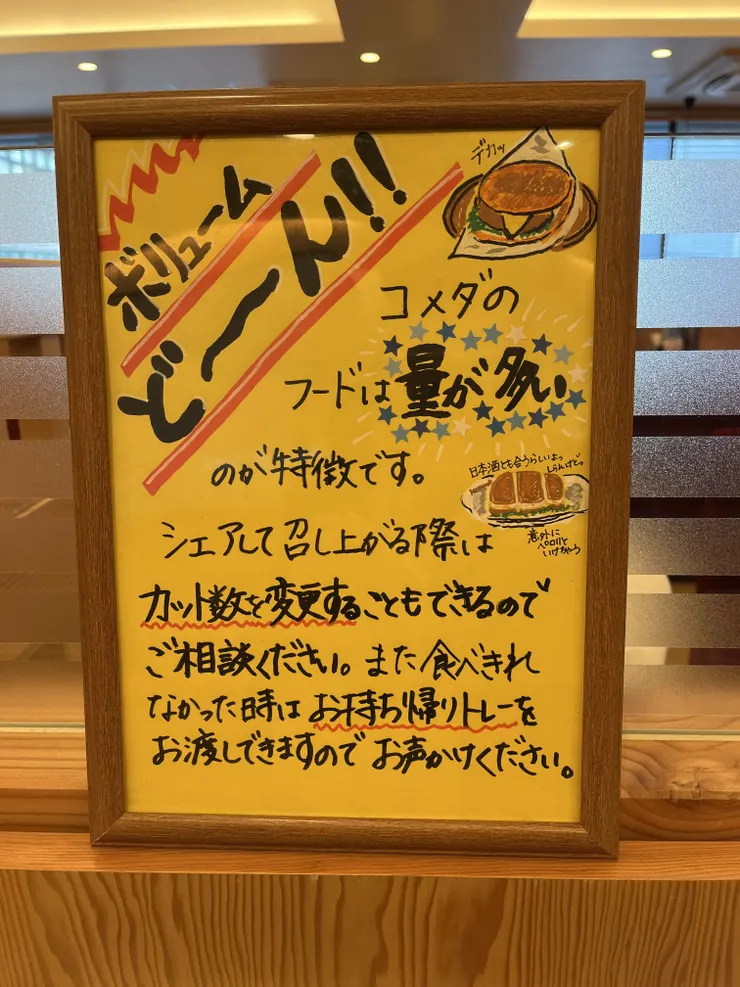 ボリューム
ど〜ん!!
デカッ
コメダの
フードは量が多い
のが特徴です。
日本酒とも合うらいよっ
しらんけどっ
意外に
ペロリと
いけちゃう
シェアして召し上がる際は
カット数を変更することもできるので
ご相談ください。また食べきれ
なかった時はお持ち帰りトレーを
お渡しできますのでお声かけください。